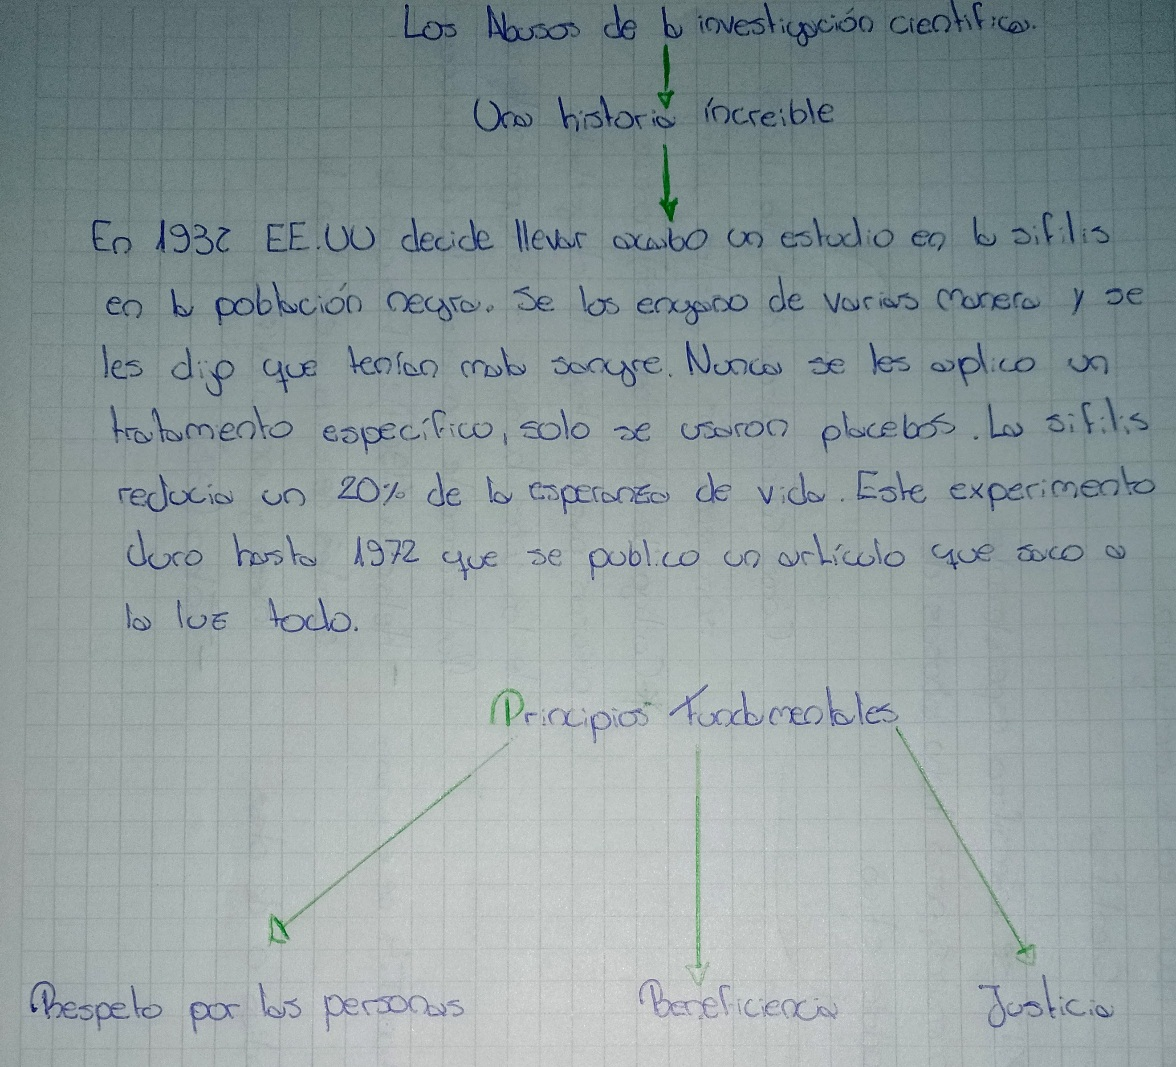 Los Abusos de la investigación cientifica.
Una historia increible
En 1932 EE.UU decide llevar acabo un estudio en la sifilis
en la población negra. Se los engano de varias manera y se
les dijo que tenían mala sangre. Nunca se les aplico un
tratamento específico, solo se usaron placebos. La sifilis
reducia un 20% de la esperanza de vida. Este experimento
duro hasta 1972 que se publico un artículo que saco a
la luz todo.
Principios fundamentales
Respeto por las personas
Beneficiencia
Justicia